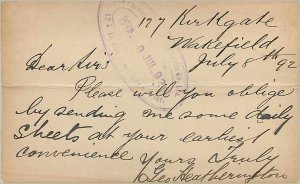 127 Kirkgate
Wakefield
July 8th 92
Dear Sirs
Please will you oblige
by sending me some daily
sheets at your earliest
convenience
Yours Truly
Geo Heatherington